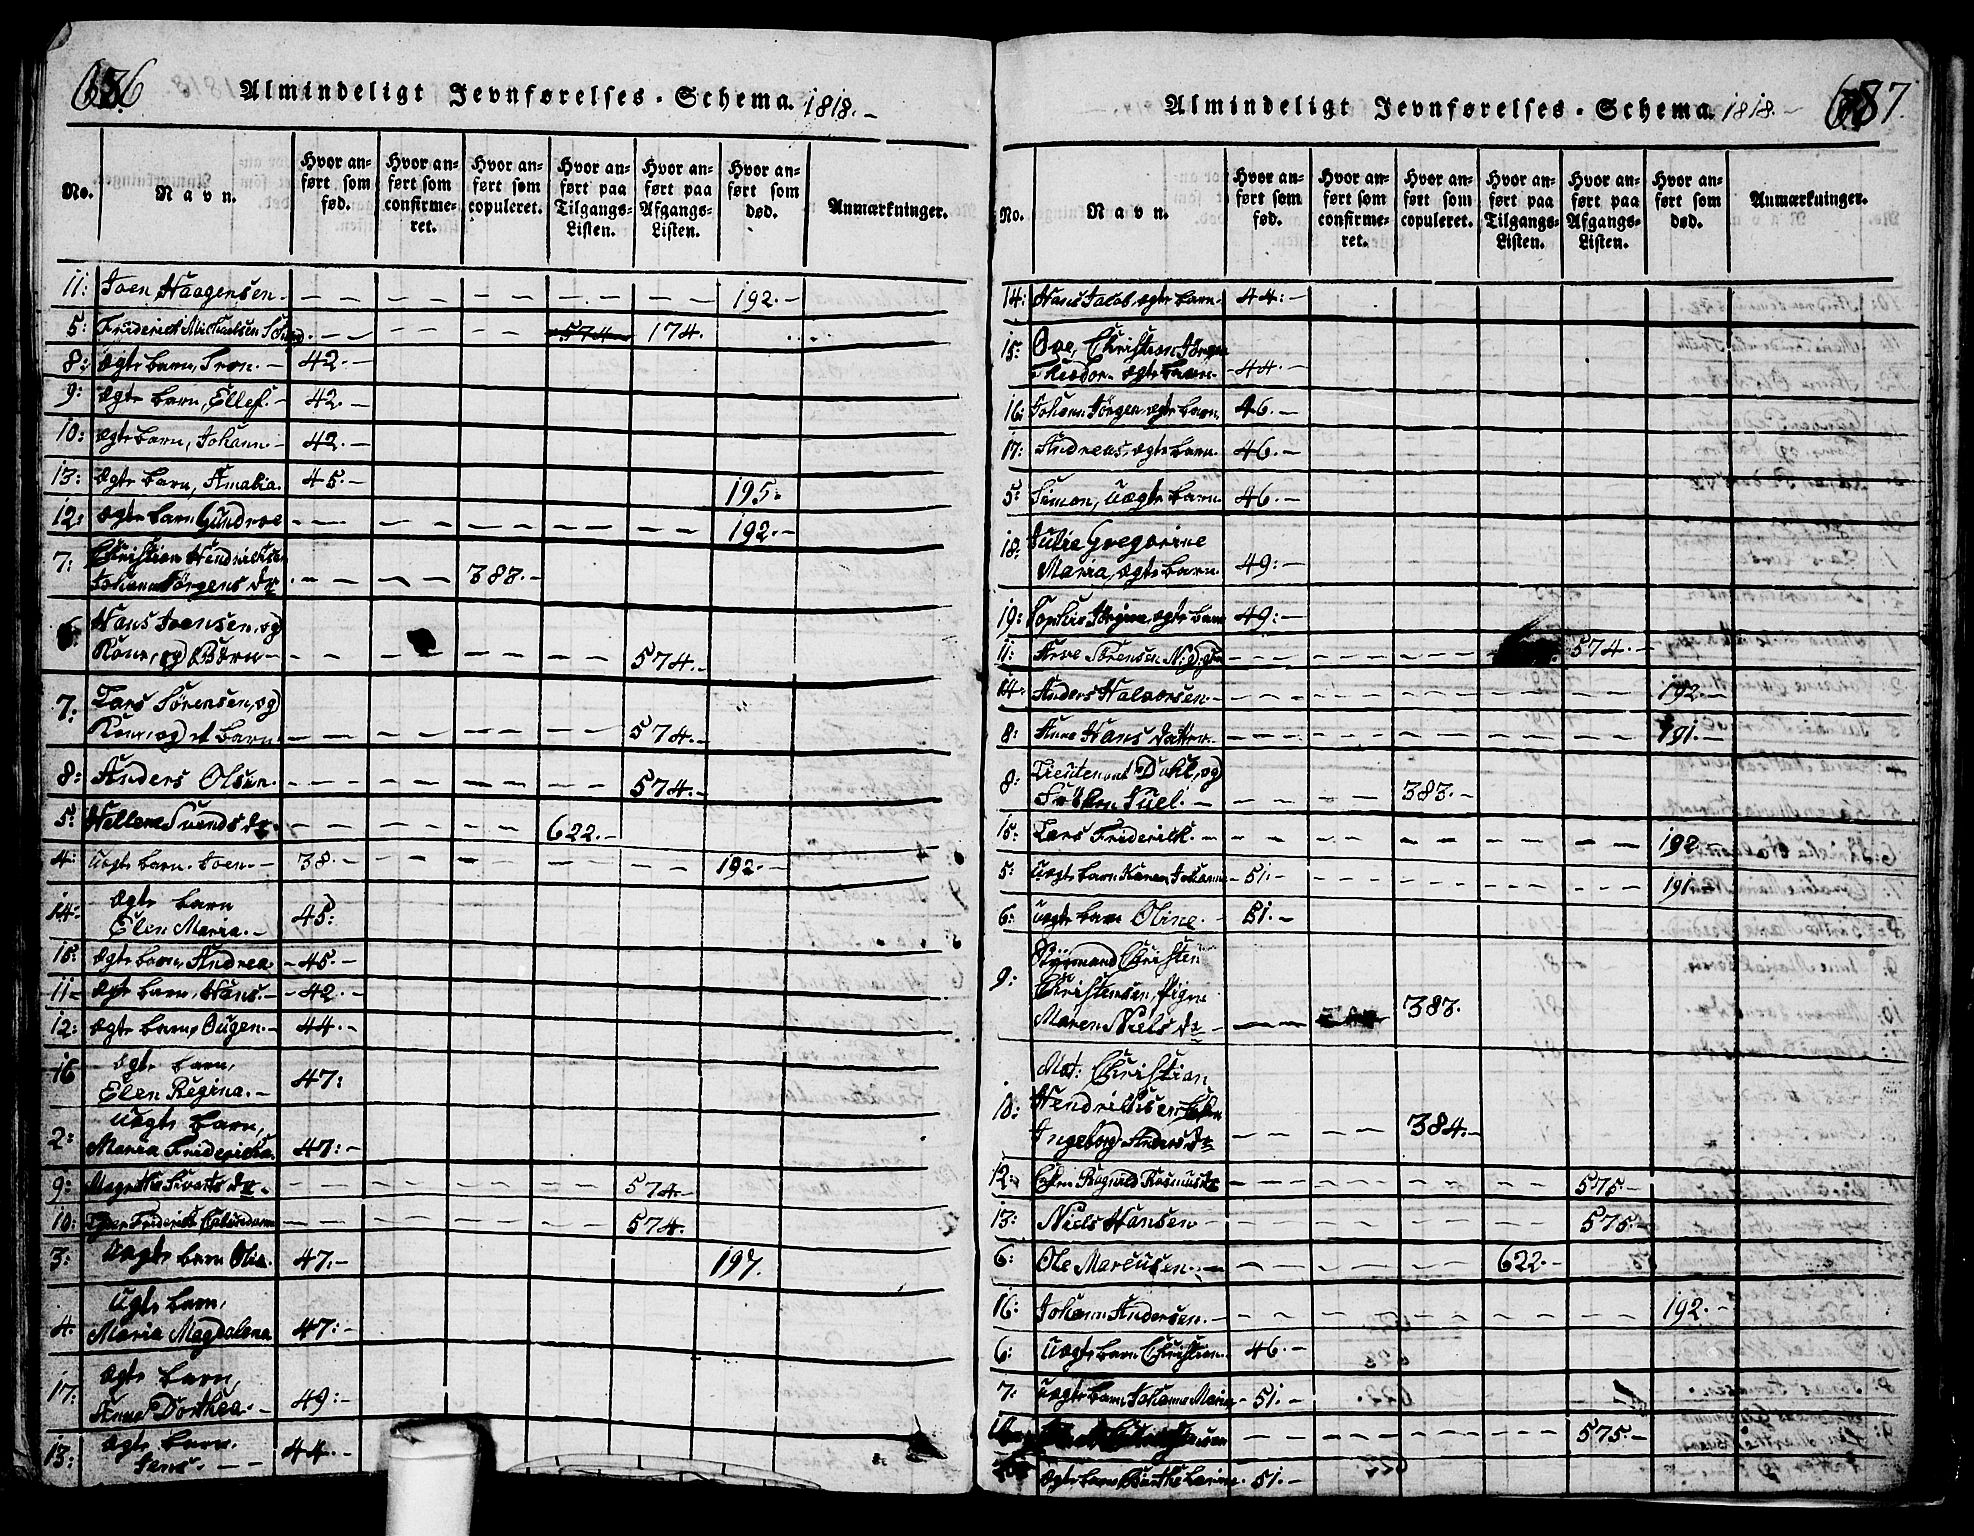 686
Almindeligt Jevnførelses-Schema. 1818.-
No.
Navn.
Hvor anført som fød.
Hvor anført som confirmeret.
Hvor anført som copuleret.
Hvor anført paa Tilgangs-Listen.
Hvor anført paa Afgangs-Listen.
Hvor anført som død.
Anmærkninger.
11: Joen Haagensen.- 192.-
5: Friderich Michaelsen 574 174.
8: ægte barn, Tron.- 42.-
9: ægte barn, Ellef.- 42.-
10: ægte barn, Johann.- 42.-
13: ægte barn, Amalia. 45.- 195:
12: ægte barn Gundroe 192.-
7: Christian Hendrichsen
Johanna Jørgens dr 383.-
6: Hans Joensen, og
Kone, og Børn- 574.-
7: Lars Sørensen, og
Kone, og et barn 574.-
8: Anders Olsen. 574.-
5: Hellene Svends dr. 622.-
4: uægte barn. Joen.- 38.- 192.-
14: ægte barn
Elen Maria.- 45:
15: ægte barn, Andrea- 45.-
11- ægte barn, Hans.- 42.-
12: ægte barn, Ougen.- 44.-
16 ægte barn,
Elen Regina.- 47:
2: uægte barn,
Maria Friderica. 47:-
9: Magrethe Siverts dr.- 574.-
10: Friderich 574.
3: uægte barn Olia. 47.- 197.
4. uægte barn,
Maria Magdalena 47:-
17: ægte barn,
Anna Dorthea.- 49:-
13: ægte barn.
Jens.- 44.-
687.
Almindeligt Jevnførelses-Schema. 1818.-
No.
Navn.
Hvor anført som fød.
Hvor anført som confirmeret.
Hvor anført som copuleret.
Hvor anført paa Tilgangs-Listen.
Hvor anført paa Afgangs-Listen.
Hvor anført som død.
Anmærkninger.
14: Hans Jacob, ægte barn. 44:-
15: Ove, Christian Jørgen
Theodor. ægte barn. 44.-
16: Johann Jørgen, ægte barn. 46.-
17: Andreas, ægte barn. 46.-
5: Simon, uægte barn. 46.-
18: Julie Gregorine
Maria, ægte barn. 49:-
19: Sophie Jørgine, ægte barn 49:-
11: Arve Sørensen 574.-
14: Anders Halvorsen.- 192.-
8: Anne Hans datter.- 191.-
8: Lieutenant Dahl, og
Frøken Juel.- 383.-
15: Lars Friderik.- 192.-
5: uægte barn Karen Johanne- 51.- 191.-
6: uægte barn Oline.- 51.-
9: Styrmand Christen
Christensen, Pigen
Maren Niels dr- 383.
10: Mat: Christian
Hendrichsen,
Ingeborg Anders dr 384.-
12: Ragnild Rasmus dr 575.-
13: Niels Hansen- 575.-
6: Ole Marcusen.- 622.-
16: Johann Andersen.- 192.-
6: uægte barn Christian. 46.-
7. uægte barn Johanne Maria- 51.-
575.-
ægte barn Larine. 51.-